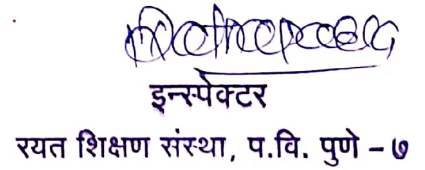 इन्स्पेक्टर
रयत शिक्षण संस्था, प.वि. पुणे – ७